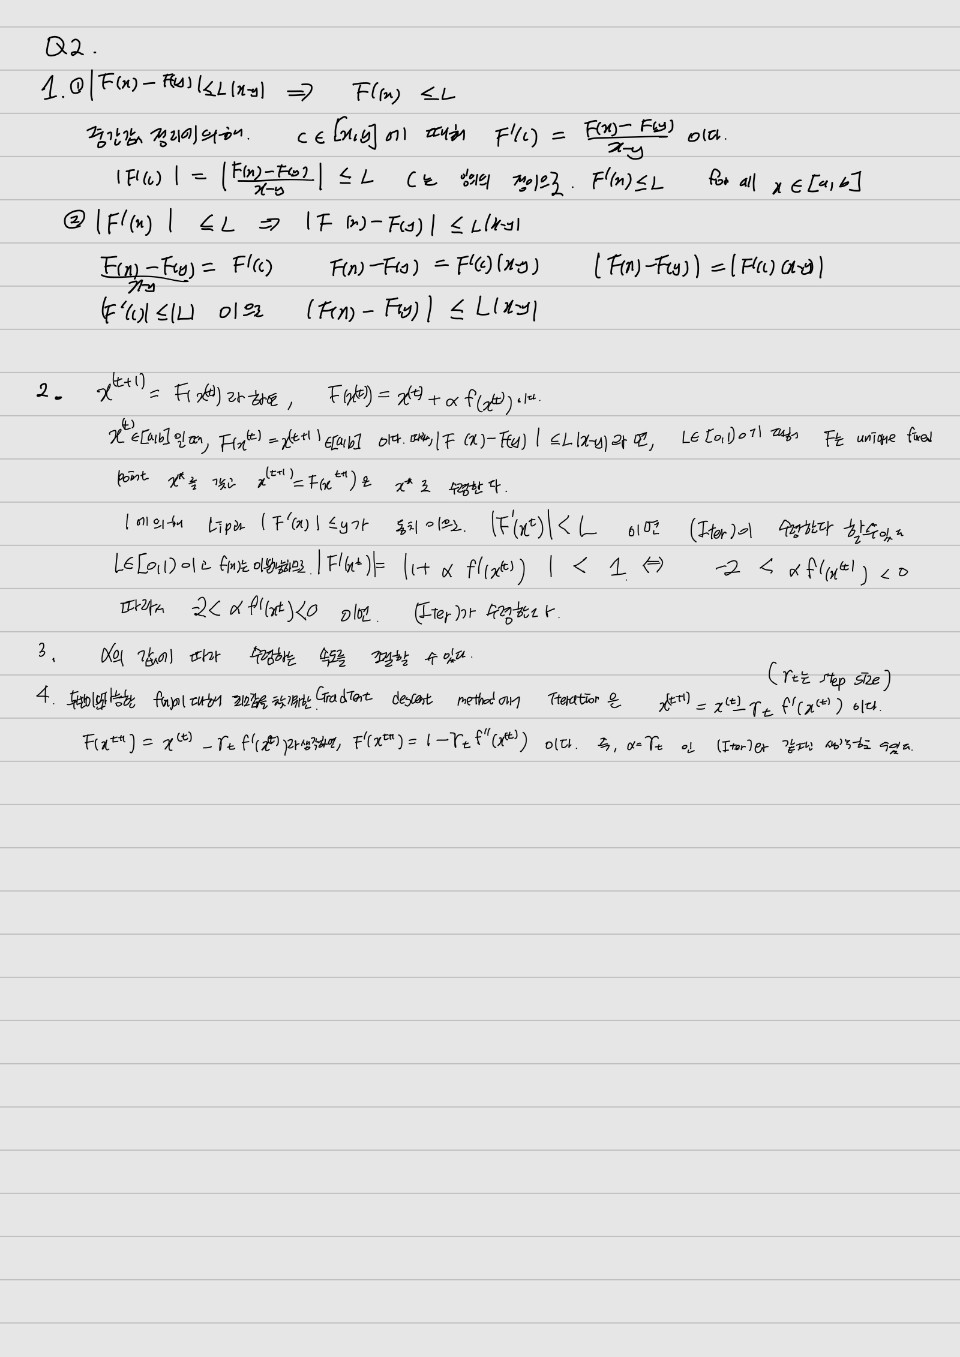 Q2.
1. ① |F(x) - F(y)| ≤ L|x-y| ⇒ F'(x) ≤ L
중간값 정리에 의해. c ∈ [x,y] 에 대해 F'(c) = \frac{F(x) - F(y)}{x-y} 이다.
|F'(c)| = |\frac{F(x) - F(y)}{x-y}| ≤ L c는 임의의 점이므로. F'(x) ≤ L for all x ∈ [a,b]
② |F'(x)| ≤ L ⇒ |F(x) - F(y)| ≤ L|x-y|
\frac{F(x) - F(y)}{x-y} = F'(c) F(x) - F(y) = F'(c)(x-y) |F(x) - F(y)| = |F'(c)(x-y)|
|F'(c)| ≤ |L| 이므로 |F(x) - F(y)| ≤ L|x-y|
2. x^{(t+1)} = F(x^{(t)}) 라 하면, F(x^{(t)}) = x^{(t)} + α f(x^{(t)}) 이다.
x^{(t)} ∈ [a,b] 일 때, F(x^{(t)}) = x^{(t+1)} ∈ [a,b] 이다. |F(x) - F(y)| ≤ L|x-y| 라면, L ∈ [0,1) 에 대해 F는 unique fixed
point x* 를 갖고 x^{(t+1)} = F(x^{(t)}) 은 x* 로 수렴한다.
1에 의해 Lip와 |F'(x)| ≤ y가 동치 이므로. |F'(x^t)| < L 이면 (Iter)이 수렴한다 할 수 있다
L ∈ [0,1) 이고 f(x)는 미분가능하므로 |F'(x^t)| = |1 + α f'(x^{(t)})| < 1. ⇔ -2 < α f'(x^{(t)}) < 0
따라서 -2 < α f'(x^t) < 0 이면. (Iter)가 수렴한다.
3. α의 값에 따라 수렴하는 속도를 조절할 수 있다.
(r_t는 step size)
4. 두번미분가능한 f(x)에 대해 최소값을 찾기위한 Gradient descent method에서 Iteration 은 x^{(t+1)} = x^{(t)} - r_t f'(x^{(t)}) 이다.
F(x^{t+1}) = x^{(t)} - r_t f'(x^{(t)}) 라 생각하면, F'(x^{t+1}) = 1 - r_t f''(x^{(t)}) 이다. 즉, α = r_t 인 (Iter)와 같다고 생각할 수 있다.